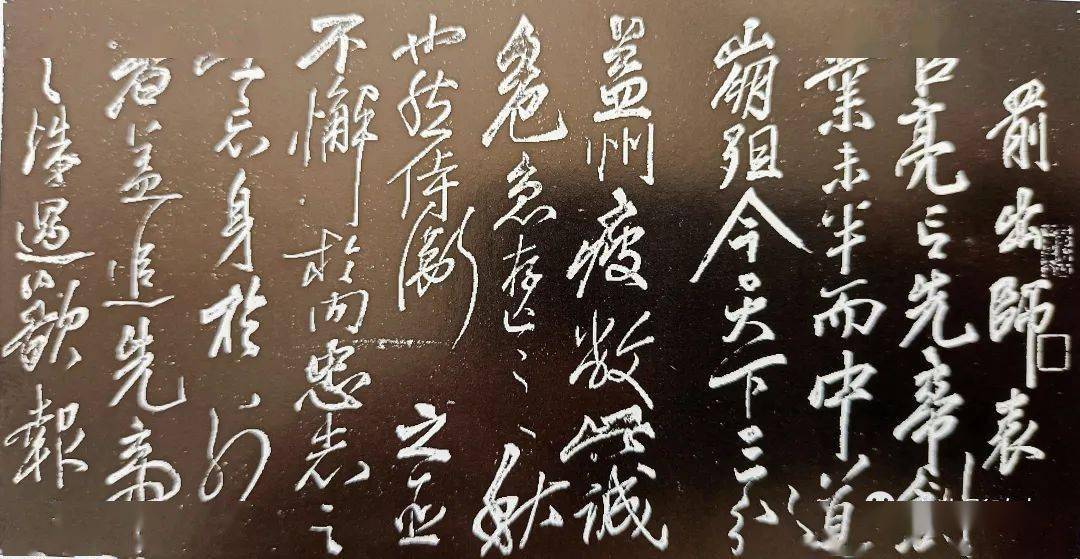 前出師表
臣亮言先帝創
業未半而中道
崩殂今天下三分
益州疲敝此誠
危急存亡之秋
也然侍衛之臣
不懈於内忠志之
士忘身於外
者蓋追先帝
之殊遇欲報